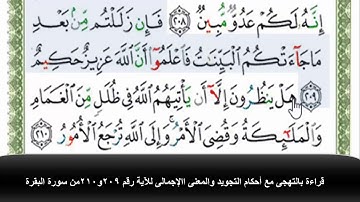 إِنَّهُ لَكُمْ عَدُوٌّ مُّبِينٌ ٢٠٨ فَإِن زَلَلْتُم مِّن بَعْدِ
مَا جَآءَتْكُمُ الْبَيِّنَٰتُ فَاعْلَمُوٓا۟ أَنَّ اللَّهَ عَزِيزٌ حَكِيمٌ
٢٠٩ هَلْ يَنظُرُونَ إِلَّآ أَن يَأْتِيَهُمُ اللَّهُ فِى ظُلَلٍ مِّنَ الْغَمَامِ
وَالْمَلَٰٓئِكَةُ وَقُضِىَ الْأَمْرُ وَإِلَى اللَّهِ تُرْجَعُ الْأُمُورُ ٢١٠
قراءة بالتهجى مع أحكام التجويد والمعنى الاإجمالى للآية رقم ٢٠٩و٢١٠من سورة البقرة